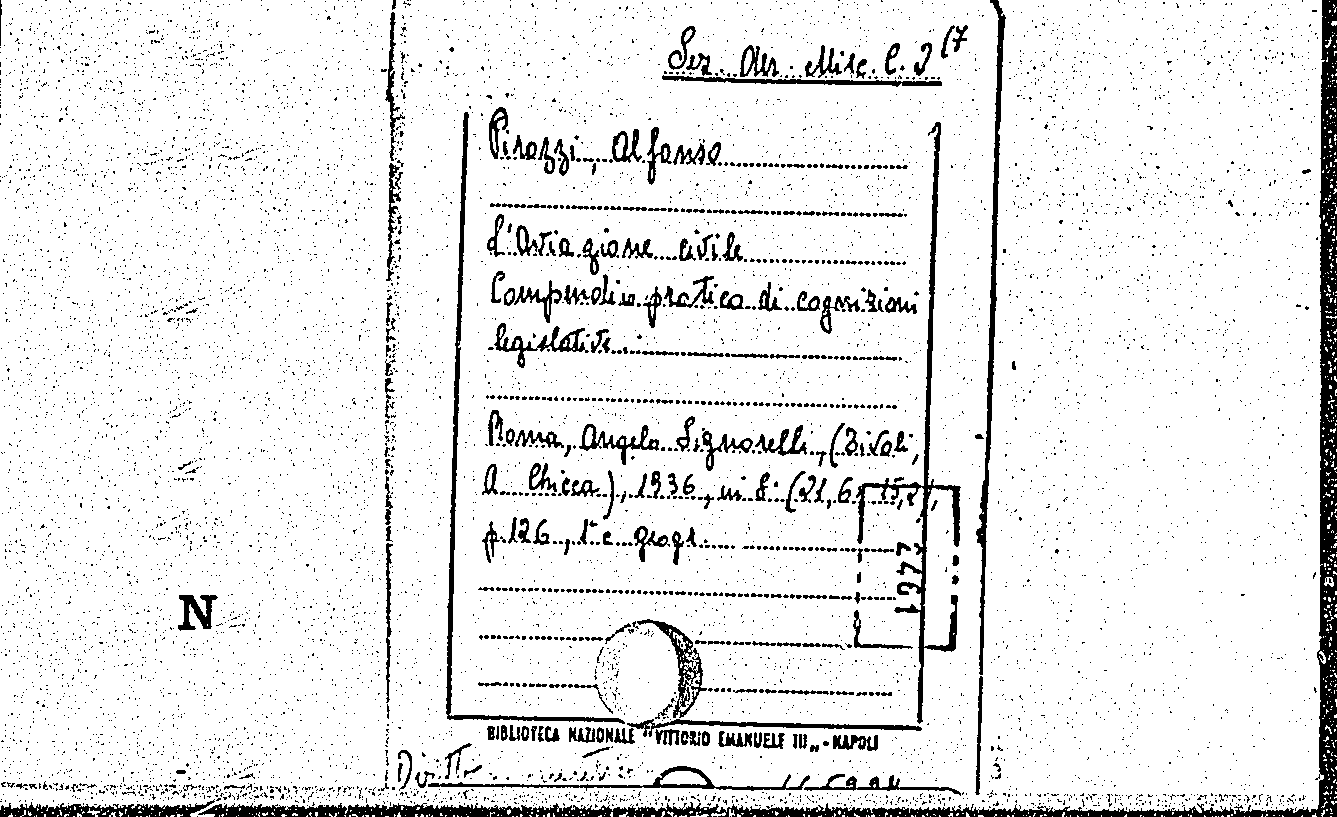 Sez. Aer. Misc. C. 2 (7
Pirozzi, Alfonso
L'Aviazione civile
Compendio pratico di cognizioni
legislative.
Roma, Angelo Signorelli, (Tivoli,
A. Chicca), 1936, in 8° (21,6x15,2),
p. 126, 1 c. geogr.
N
BIBLIOTECA NAZIONALE "VITTORIO EMANUELE III„ - NAPOLI